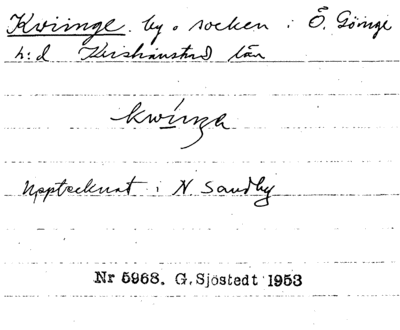 Kviinge. by o socken i Ö. Göinge
h:d Kristianstad län
kwínga
Upptecknat i N. Sandby
Nr 5968. G. Sjöstedt 1953